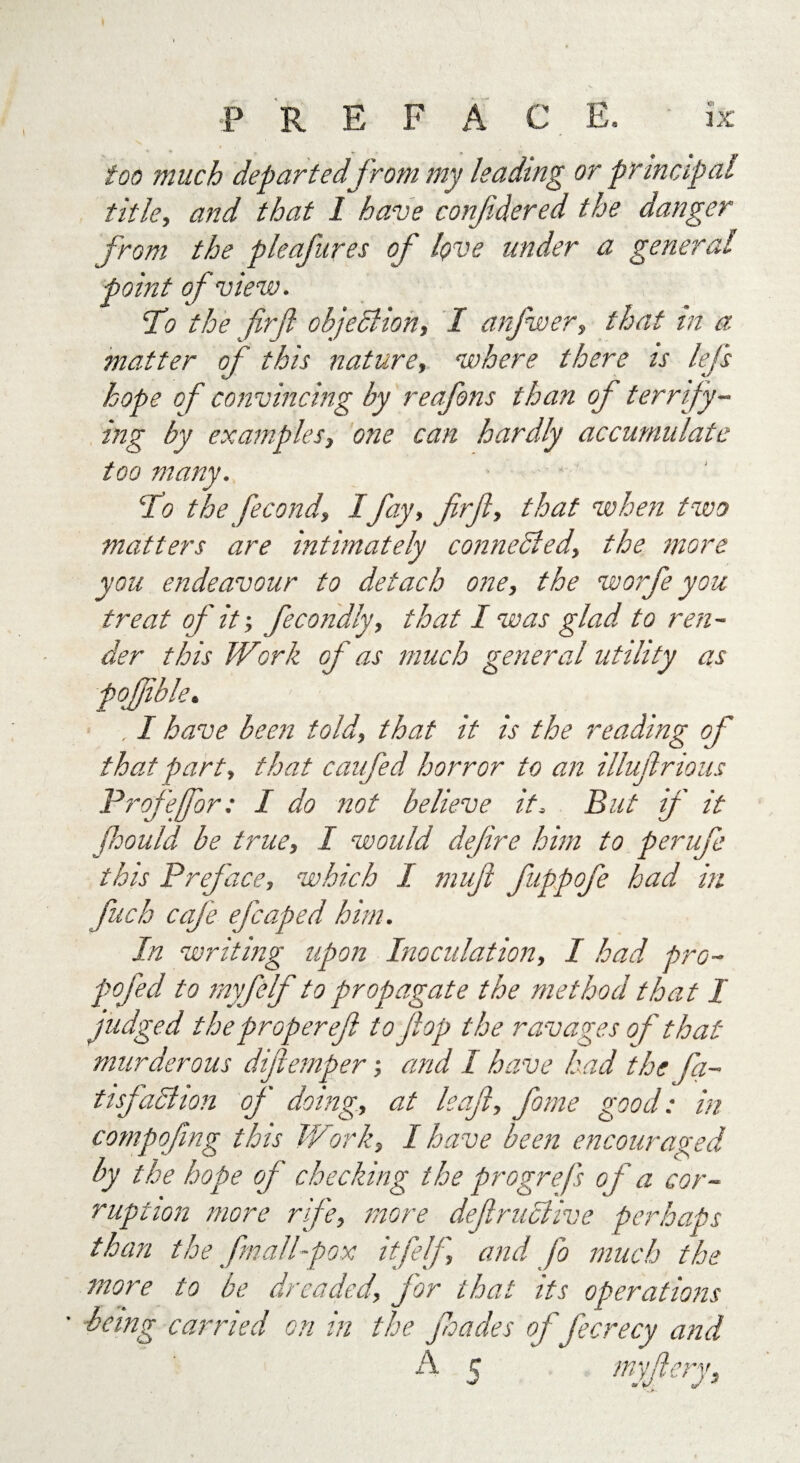 PREFACE. ix
too much departed from my leading or principal
title, and that I have conſidered the danger
from the pleaſures of love under a general
point of view.
To the firſt objection, I anſwer, that in a
matter of this nature, where there is leſs
hope of convincing by reaſons than of terrify-
ing by examples, one can hardly accumulate
too many.
To the ſecond, I ſay, firſt, that when two
matters are intimately connected, the more
you endeavour to detach one, the worſe you
treat of it; ſecondly, that I was glad to ren-
der this Work of as much general utility as
poſſible.
I have been told, that it is the reading of
that part, that cauſed horror to an illuſtrious
Profeſſor: I do not believe it. But if it
ſhould be true, I would deſire him to peruſe
this Preface, which I muſt ſuppoſe had in
ſuch caſe eſcaped him.
In writing upon Inoculation, I had pro-
poſed to myſelf to propagate the method that I
judged the propereſt to ſtop the ravages of that
murderous diſtemper; and I have had the ſa-
tisfaction of doing, at leaſt, ſome good: in
compoſing this Work, I have been encouraged
by the hope of checking the progreſs of a cor-
ruption more rife, more deſtructive perhaps
than the ſmall-pox itſelf, and ſo much the
more to be dreaded, for that its operations
being carried on in the ſhades of ſecrecy and
A 5 myſtery,